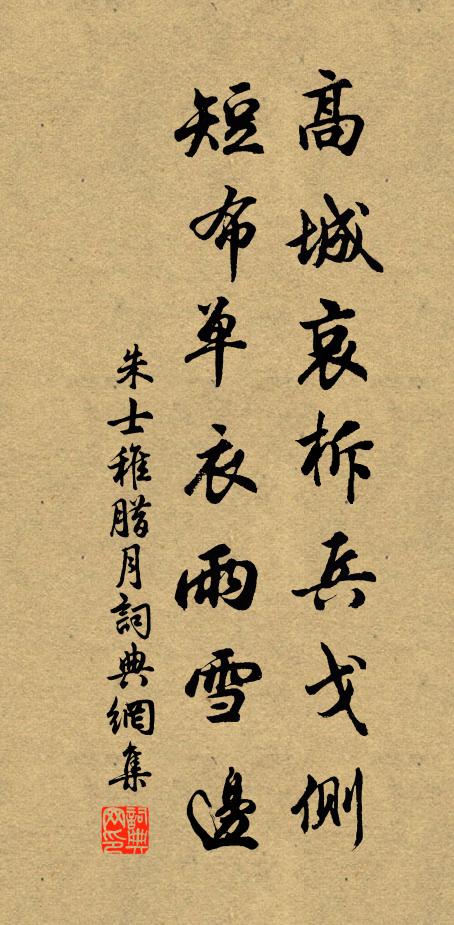 高城哀柝兵戈側
短布单衣雨雪邊
朱士稚腊月詞典網集
詞典网印